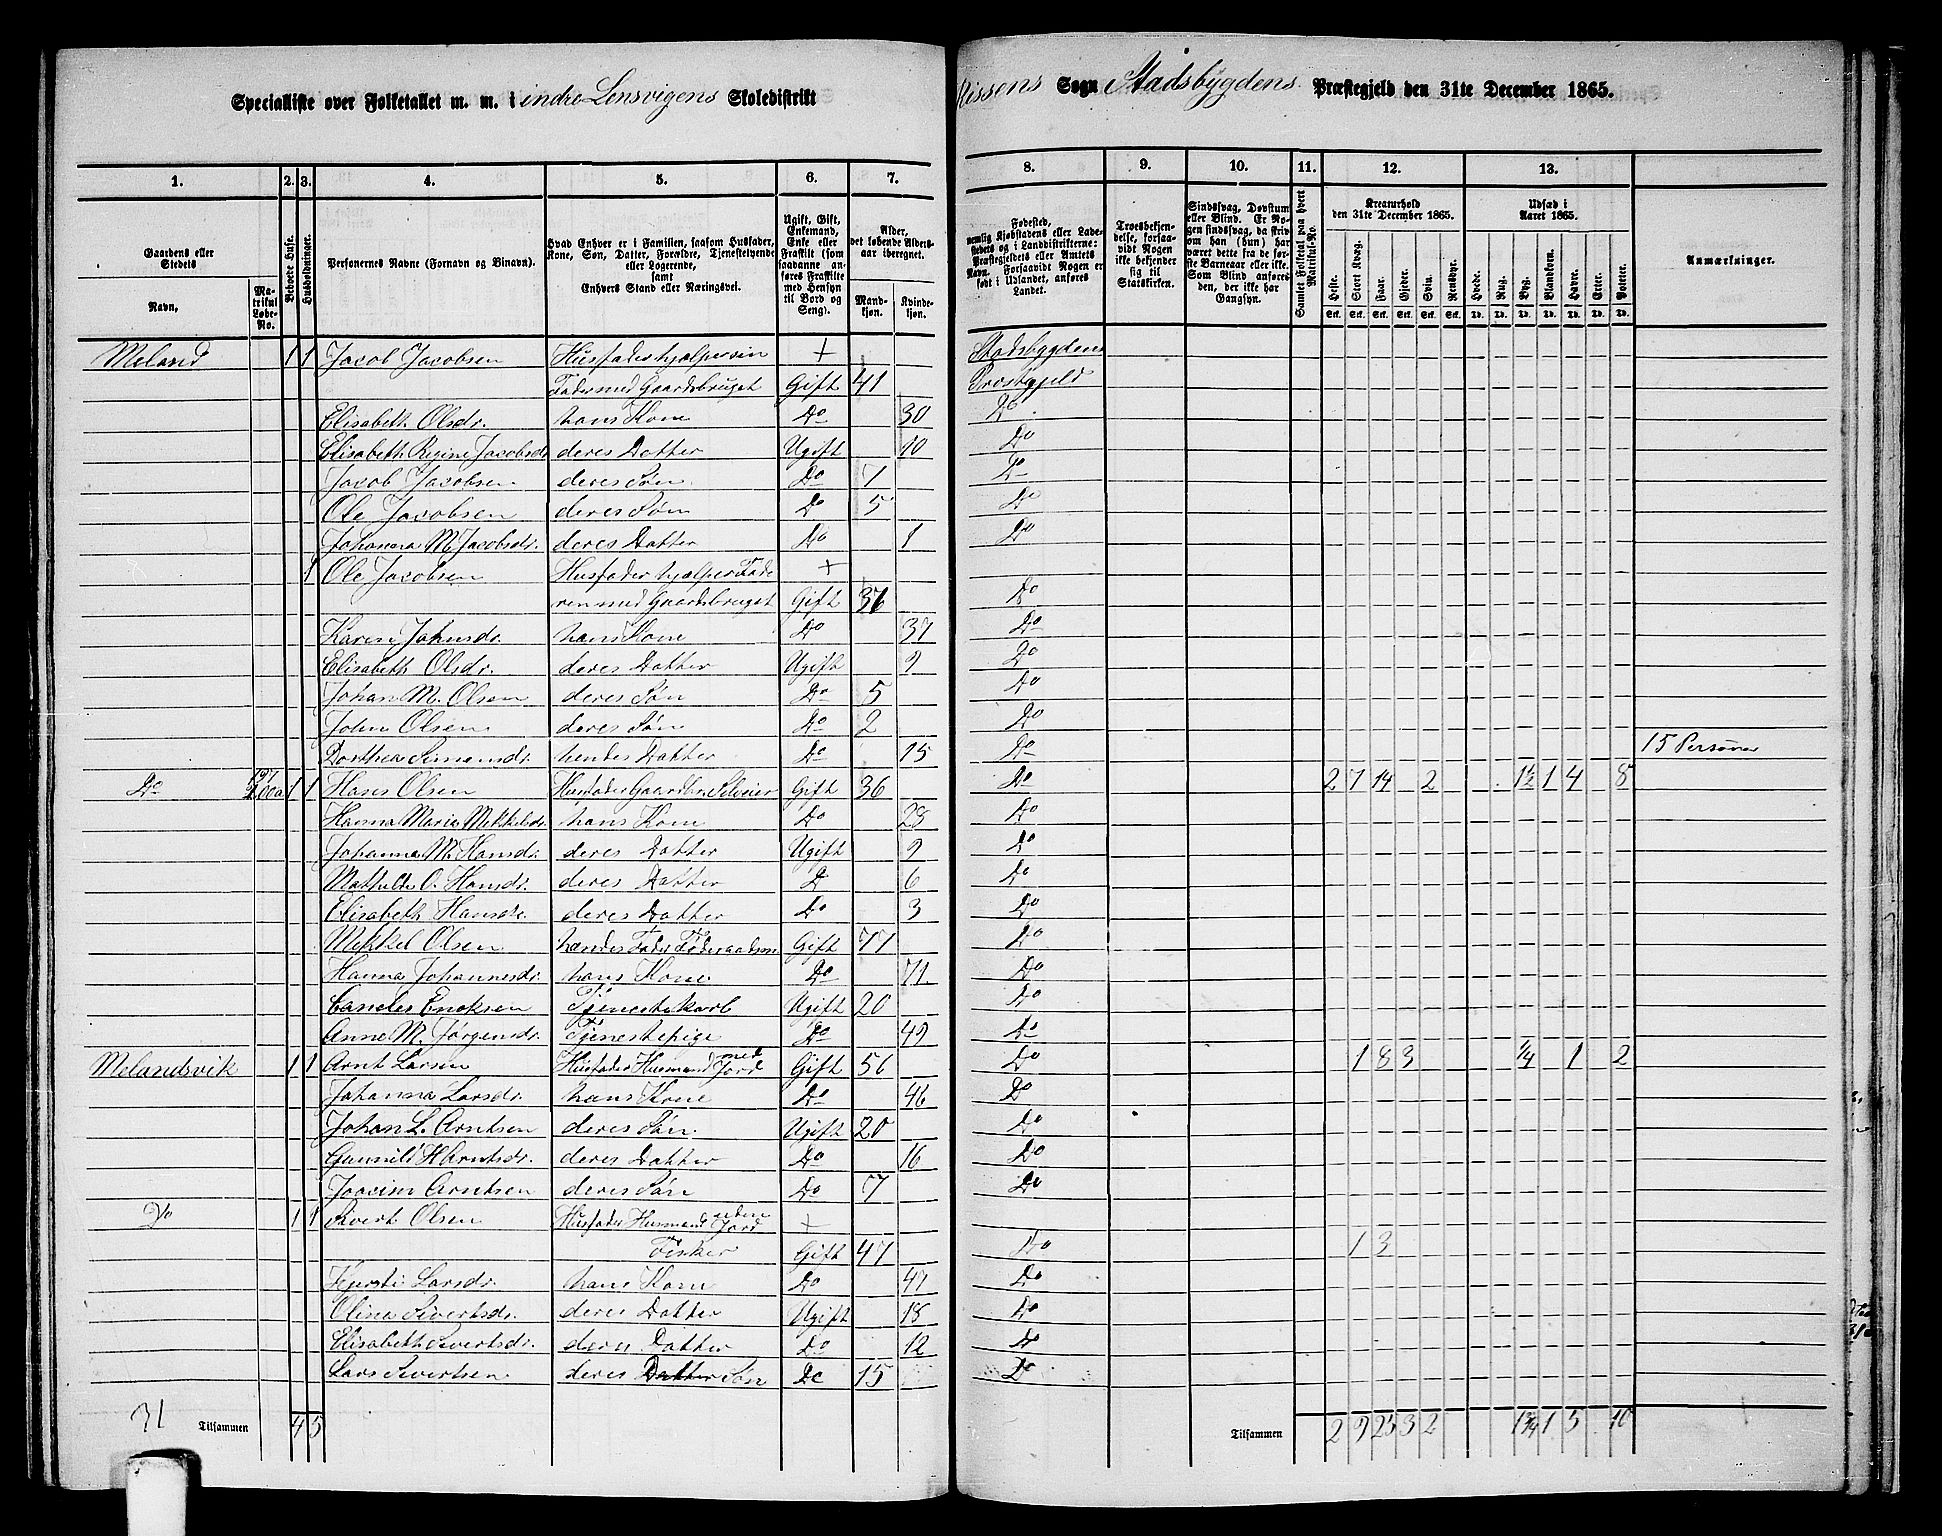 Specialliste over Folketallet m. m. i indre Lensvigens Skoledistrikt
Rissens Sogn Stadsbygdens Præstegjeld den 31te December 1865.
1. 2. 3. 4. 5. 6. 7.
8. 9. 10. 11. 12. 13.
Gaardens eller Stedets
Navn,
Matrikul Løbe-No.
Beboede Huse.
Husholdninger.
Personernes Navne (Fornavn og Binavn).
Hvad Enhver er i Familien, saasom Husfader, Kone, Søn, Datter, Forældre, Tjenestetyende eller Logerende, samt Enhvers Stand eller Næringsvei.
Ugift, Gift, Enkemand, Enke eller Fraskilt (som saadanne anføres Fraskilte med Hensyn til Bord og Seng).
Alder, det løbende Aldersaar iberegnet.
Mandkjøn.
Kvindekjøn.
Fødested, nemlig Kjøbstadens eller Ladestedets og i Landdistrikterne: Præstegjeldets eller Amtets Navn. Forsaavidt Nogen er født i Udlandet, anføres Landet.
Troesbekjendelse, forsaavidt Nogen ikke bekjender sig til Statskirken.
Sindssvag, Døvstum eller Blind. Er Nogen sindssvag, da skrives om han (hun) har været dette fra de første Barneaar eller ikke. Som Blind anføres den, der ikke har Gangsyn.
Samlet Folketal paa hvert Matrikul-No.
Kreaturhold den 31te December 1865.
Heste. Stort Kvæg. Faar. Gjeder. Svin. Rensdyr.
Udsæd i Aaret 1865.
Hvede. Rug. Byg. Blandkorn. Havre. Erter. Poteter.
Anmærkninger.
Meland 1 1 Jacob Jacobsen Husfader hjælper sin + Stadsbygdens
Fader med Gaardsbruget Gift 41 Prestegjeld
Elisabeth Olsdr. hans Kone Do 30 Do
Elisabeth Regine Jacobsdr deres Datter Ugift 10 Do
Jacob Jacobsen deres Søn Do 7 Do
Ole Jacobsen deres Søn Do 5 Do
Johanna M. Jacobsdr. deres Datter Do 1 Do
1 Ole Jacobsen Husfader hjælper Fade +
ren med Gaardsbruget Gift 36 Do
Karen Johnsdr. hans Kone Do 37 Do
Elisabeth Olsdr. deres Datter Ugift 9 Do
Johan M. Olsen deres Søn Do 5 Do
John Olsen deres Søn Do 2 Do
Dorthea Simonsdr. hendes Datter Do 15 Do 15 Personer
Do 1 1 Hans Olsen Husfader Gaardbr. Selveier Gift 36 Do 2 7 14 2 1½ 1 4 8
Hanna Maria Mikkelsdr. hans Kone Do 28 Do
Johanna M. Hansdr. deres Datter Ugift 9 Do
Mathilde O. Hansdr. deres Datter Do 6 Do
Elisabeth Hansdr. deres Datter Do 3 Do
Mikkel Olsen hendes Fader Føderaadsm. Gift 77 Do
Hanna Johannesdr. hans Kone Do 71 Do
Caneles Enoksen Tjenestekarl Ugift 20 Do
Anne M. Jørgensdr. Tjenestepige Do 49 Do
Melandsvik 1 1 Arnt Larsen Husfader Husmand med Jord Gift 56 Do 1 8 3 ¼ 1 2
Johanna Larsdr. hans Kone Do 46 Do
Johan L. Arntsen deres Søn Ugift 20 Do
Gunnild H Arntsdr. deres Datter Do 16 Do
Joacim Arntsen deres Søn Do 7 Do
Do 1 1 Sivert Olsen Husfader Husmand uden Jord +
Fisker Gift 47 Do 1 3
Kjersti Larsdr. hans Kone Do 47 Do
Olina Sivertsdr. deres Datter Ugift 18 Do
Elisabeth Sivertsdr. deres Datter Do 12 Do
Lars Sivertsen deres Datter Søn Do 15 Do
31 Tilsammen 4 5
Tilsammen 2 9 25 3 2 1¾ 1 5 10